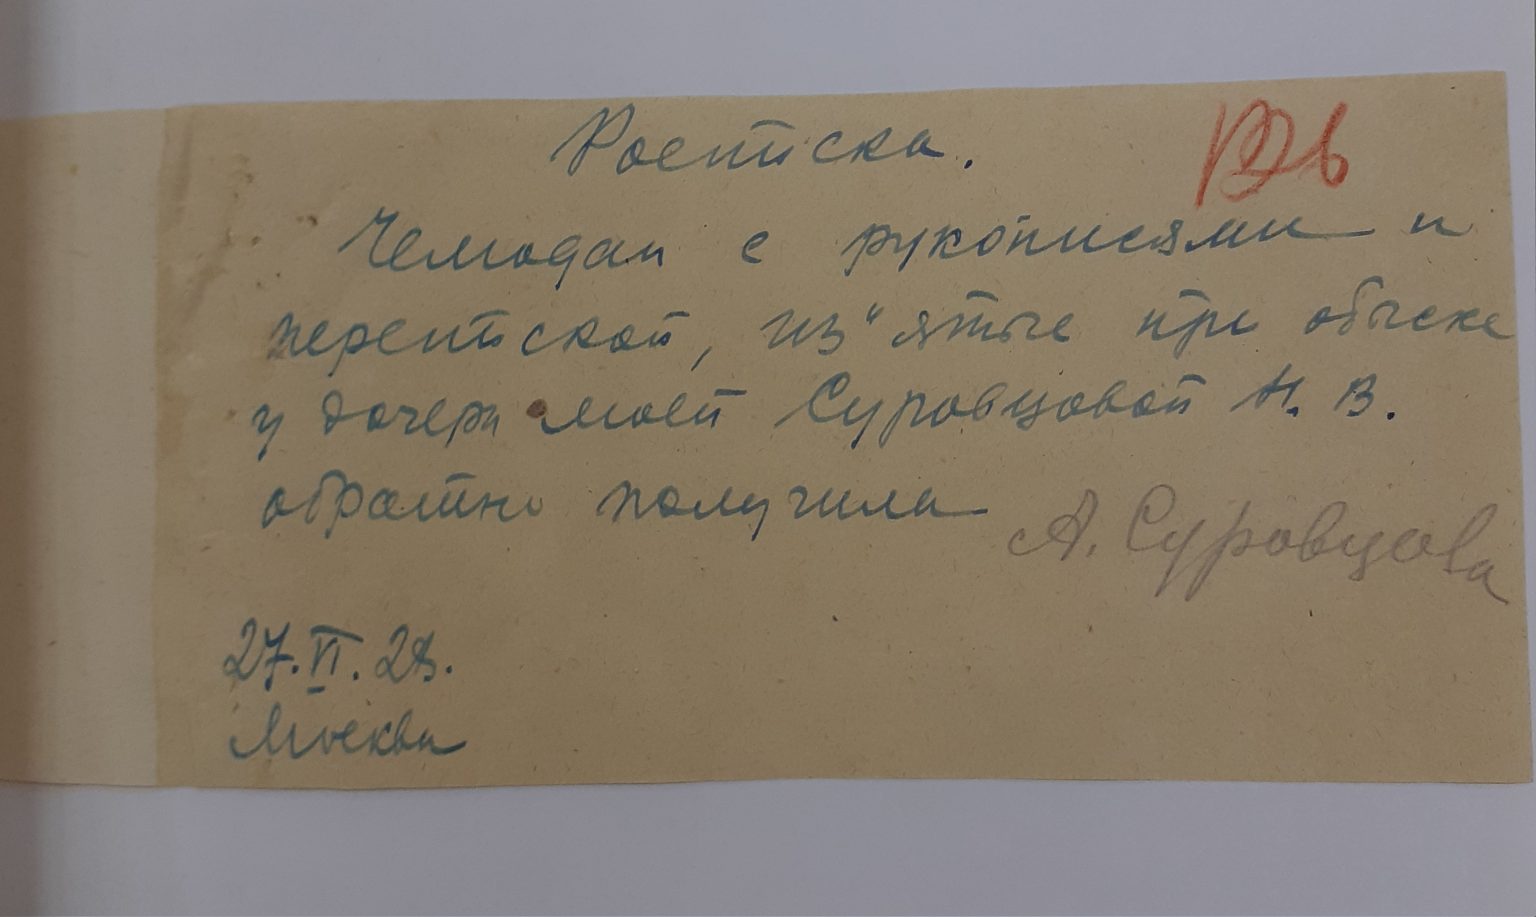 Росписка.
Чемодан с рукописями и
перепиской, из"ятые при обыске
у дочери моей Суровцовой Н. В.
обратно получила
А. Суровцова
27.VI.28.
Москва